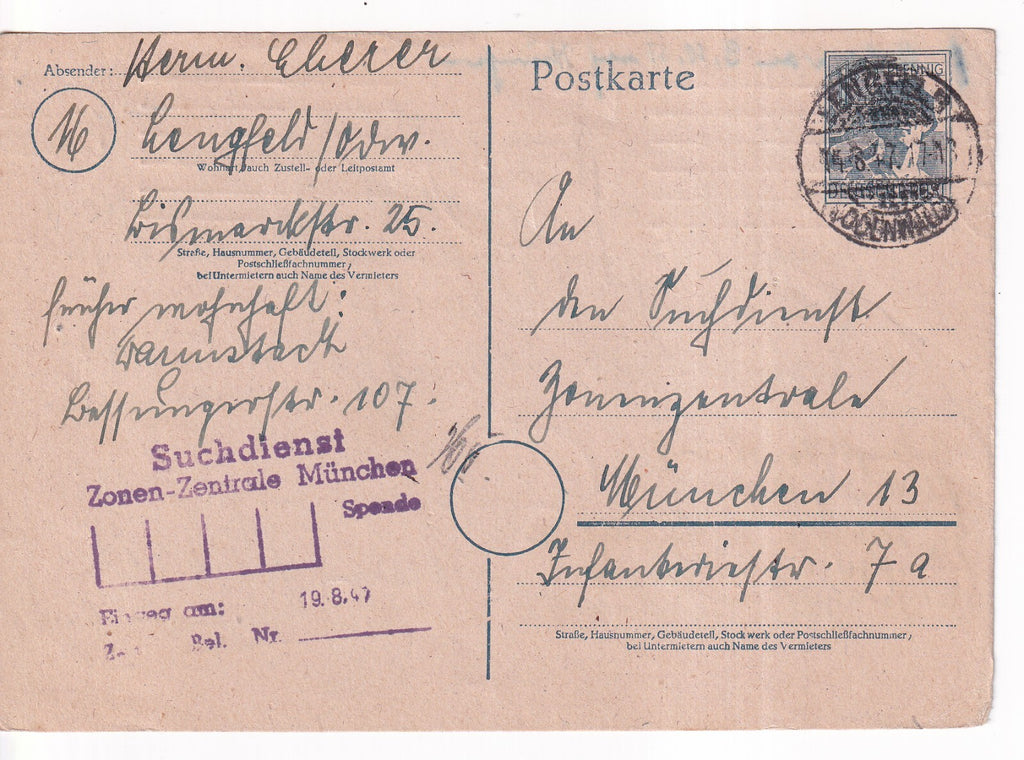 Absender: Herm. Eberer
16 Lengfeld/Odw.
Wohnort, auch Zustell- oder Leitpostamt
Bismarckstr. 25.
Straße, Hausnummer, Gebäudeteil, Stockwerk oder
Postschließfachnummer;
bei Untermietern auch Name des Vermieters
früher wohnhaft:
Darmstadt
Bessungerstr. 107.
Suchdienst
Zonen-Zentrale München
Spende
Eingang am: 19.8.47
Bel. Nr.
Postkarte
PFENNIG
LENGFELD
14.8.47.17-18
(ODENWALD)
An
den Suchdienst
Zonenzentrale
München 13
Infanteriestr. 7a
Straße, Hausnummer, Gebäudeteil, Stockwerk oder Postschließfachnummer;
bei Untermietern auch Name des Vermieters